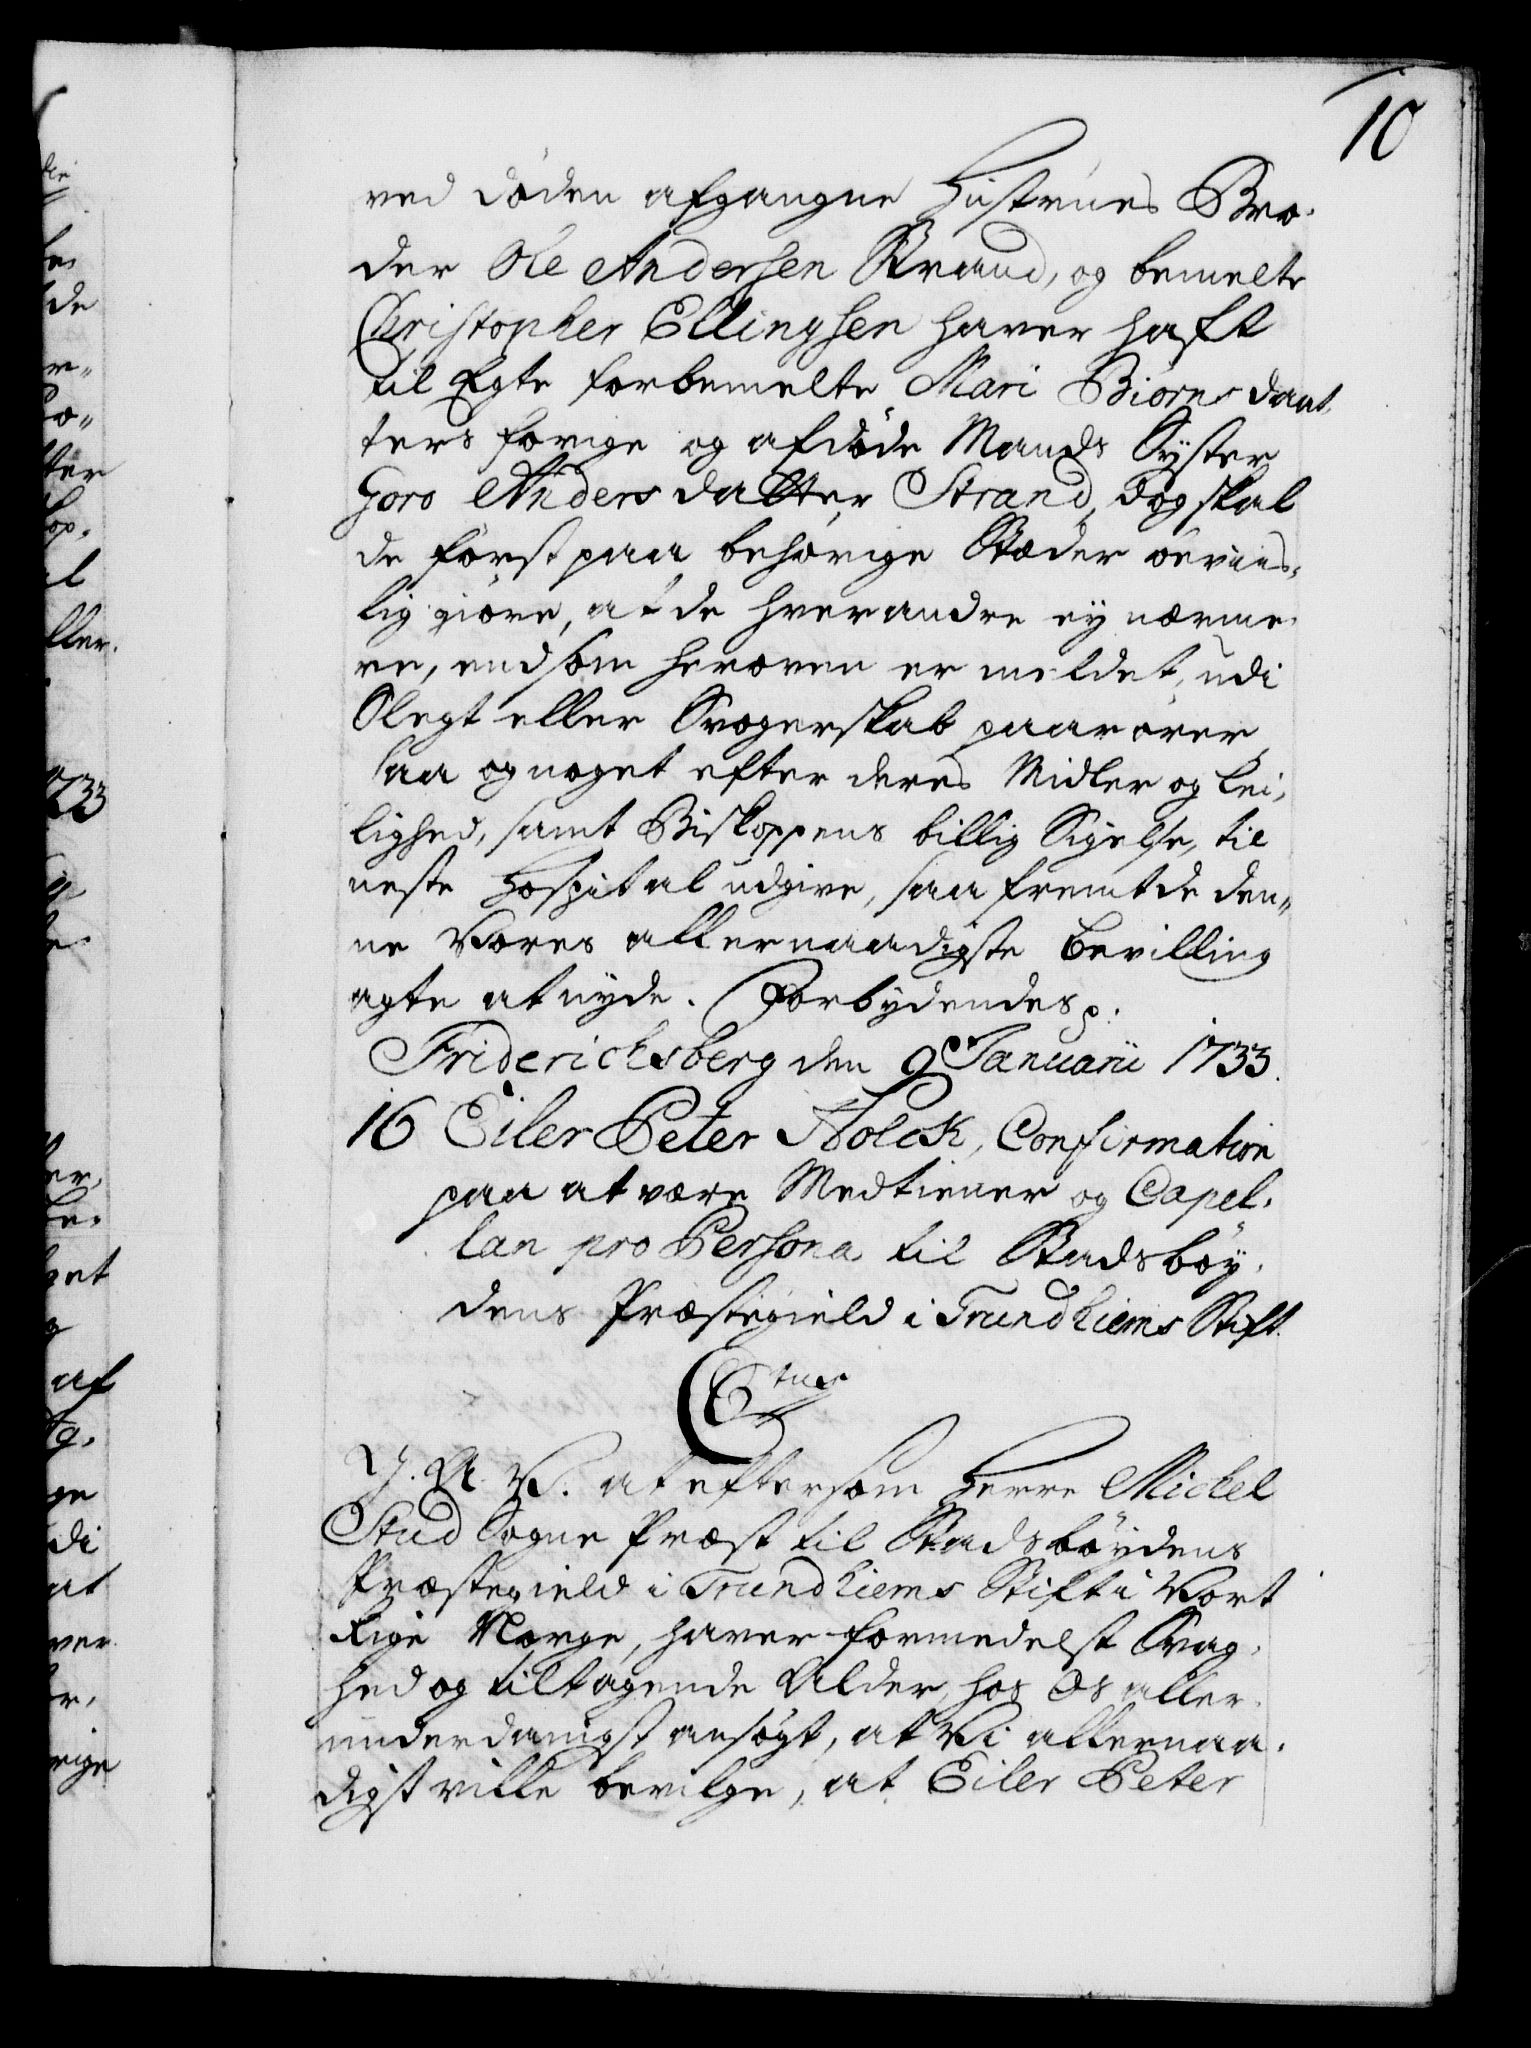 10
ved døden afgangne Hustrues Bro-
der Ole Andersen Strand, og bemelte
Christopher Ellingsen haver haft
til Egte forbemelte Mari Biørnsdaat-
ters forige og afdøde Mands Syster
Goro Andersdatter Strand, Dog skal
de først paa behørige Stæder beviis-
lig giøre, at de hverandre ey nærme-
re, end som heroven er meldet, udi
Slegt eller Svogerskab paarører,
saa og noget efter deres Midler og Lei-
lighed, samt Biskoppens billig Sigelse, til
neste Hospital udgive, saa fremt de den-
ne Vores allernaadigste Bevilling
agte at nyde. Forbydendes p.
Friderichsberg den 9 Januarii 1733.
16 Eiler Peter Holck, Confirmation
paa at være Medtiener og Capel-
lan pro Persona til Stadsbøy-
dens Præstegield i Trundhiems Stift.
C 6tus
G. A. V. at eftersom Herre Michel
Stud Sogne Præst til Stadsbøydens
Præstegield i Trundhiems Stift i Vort
Rige Norge, haver formedelst Svag-
hed og tiltagende Alder, hos Os aller-
underdanigst ansøgt, at Vi allernaa-
digst ville bevilge, at Eiler Peter